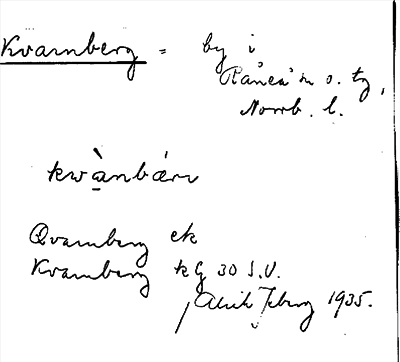 Kvarnberg = by i
Råneå sn o. tg,
Norrb. l.
kwànbárı
Qvarnberg ek
Kvarnberg kG 30 S.V.
Ulrik
1935.